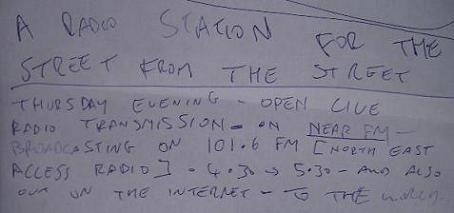 A RADIO STATION FOR THE
STREET FROM THE STREET
THURSDAY EVENING - OPEN LIVE
RADIO TRANSMISSION - ON NEAR FM -
BROADCASTING ON 101.6 FM [NORTH EAST
ACCESS RADIO] - 4.30 → 5.30 - AND ALSO
OUT ON THE INTERNET - TO THE WORLD.